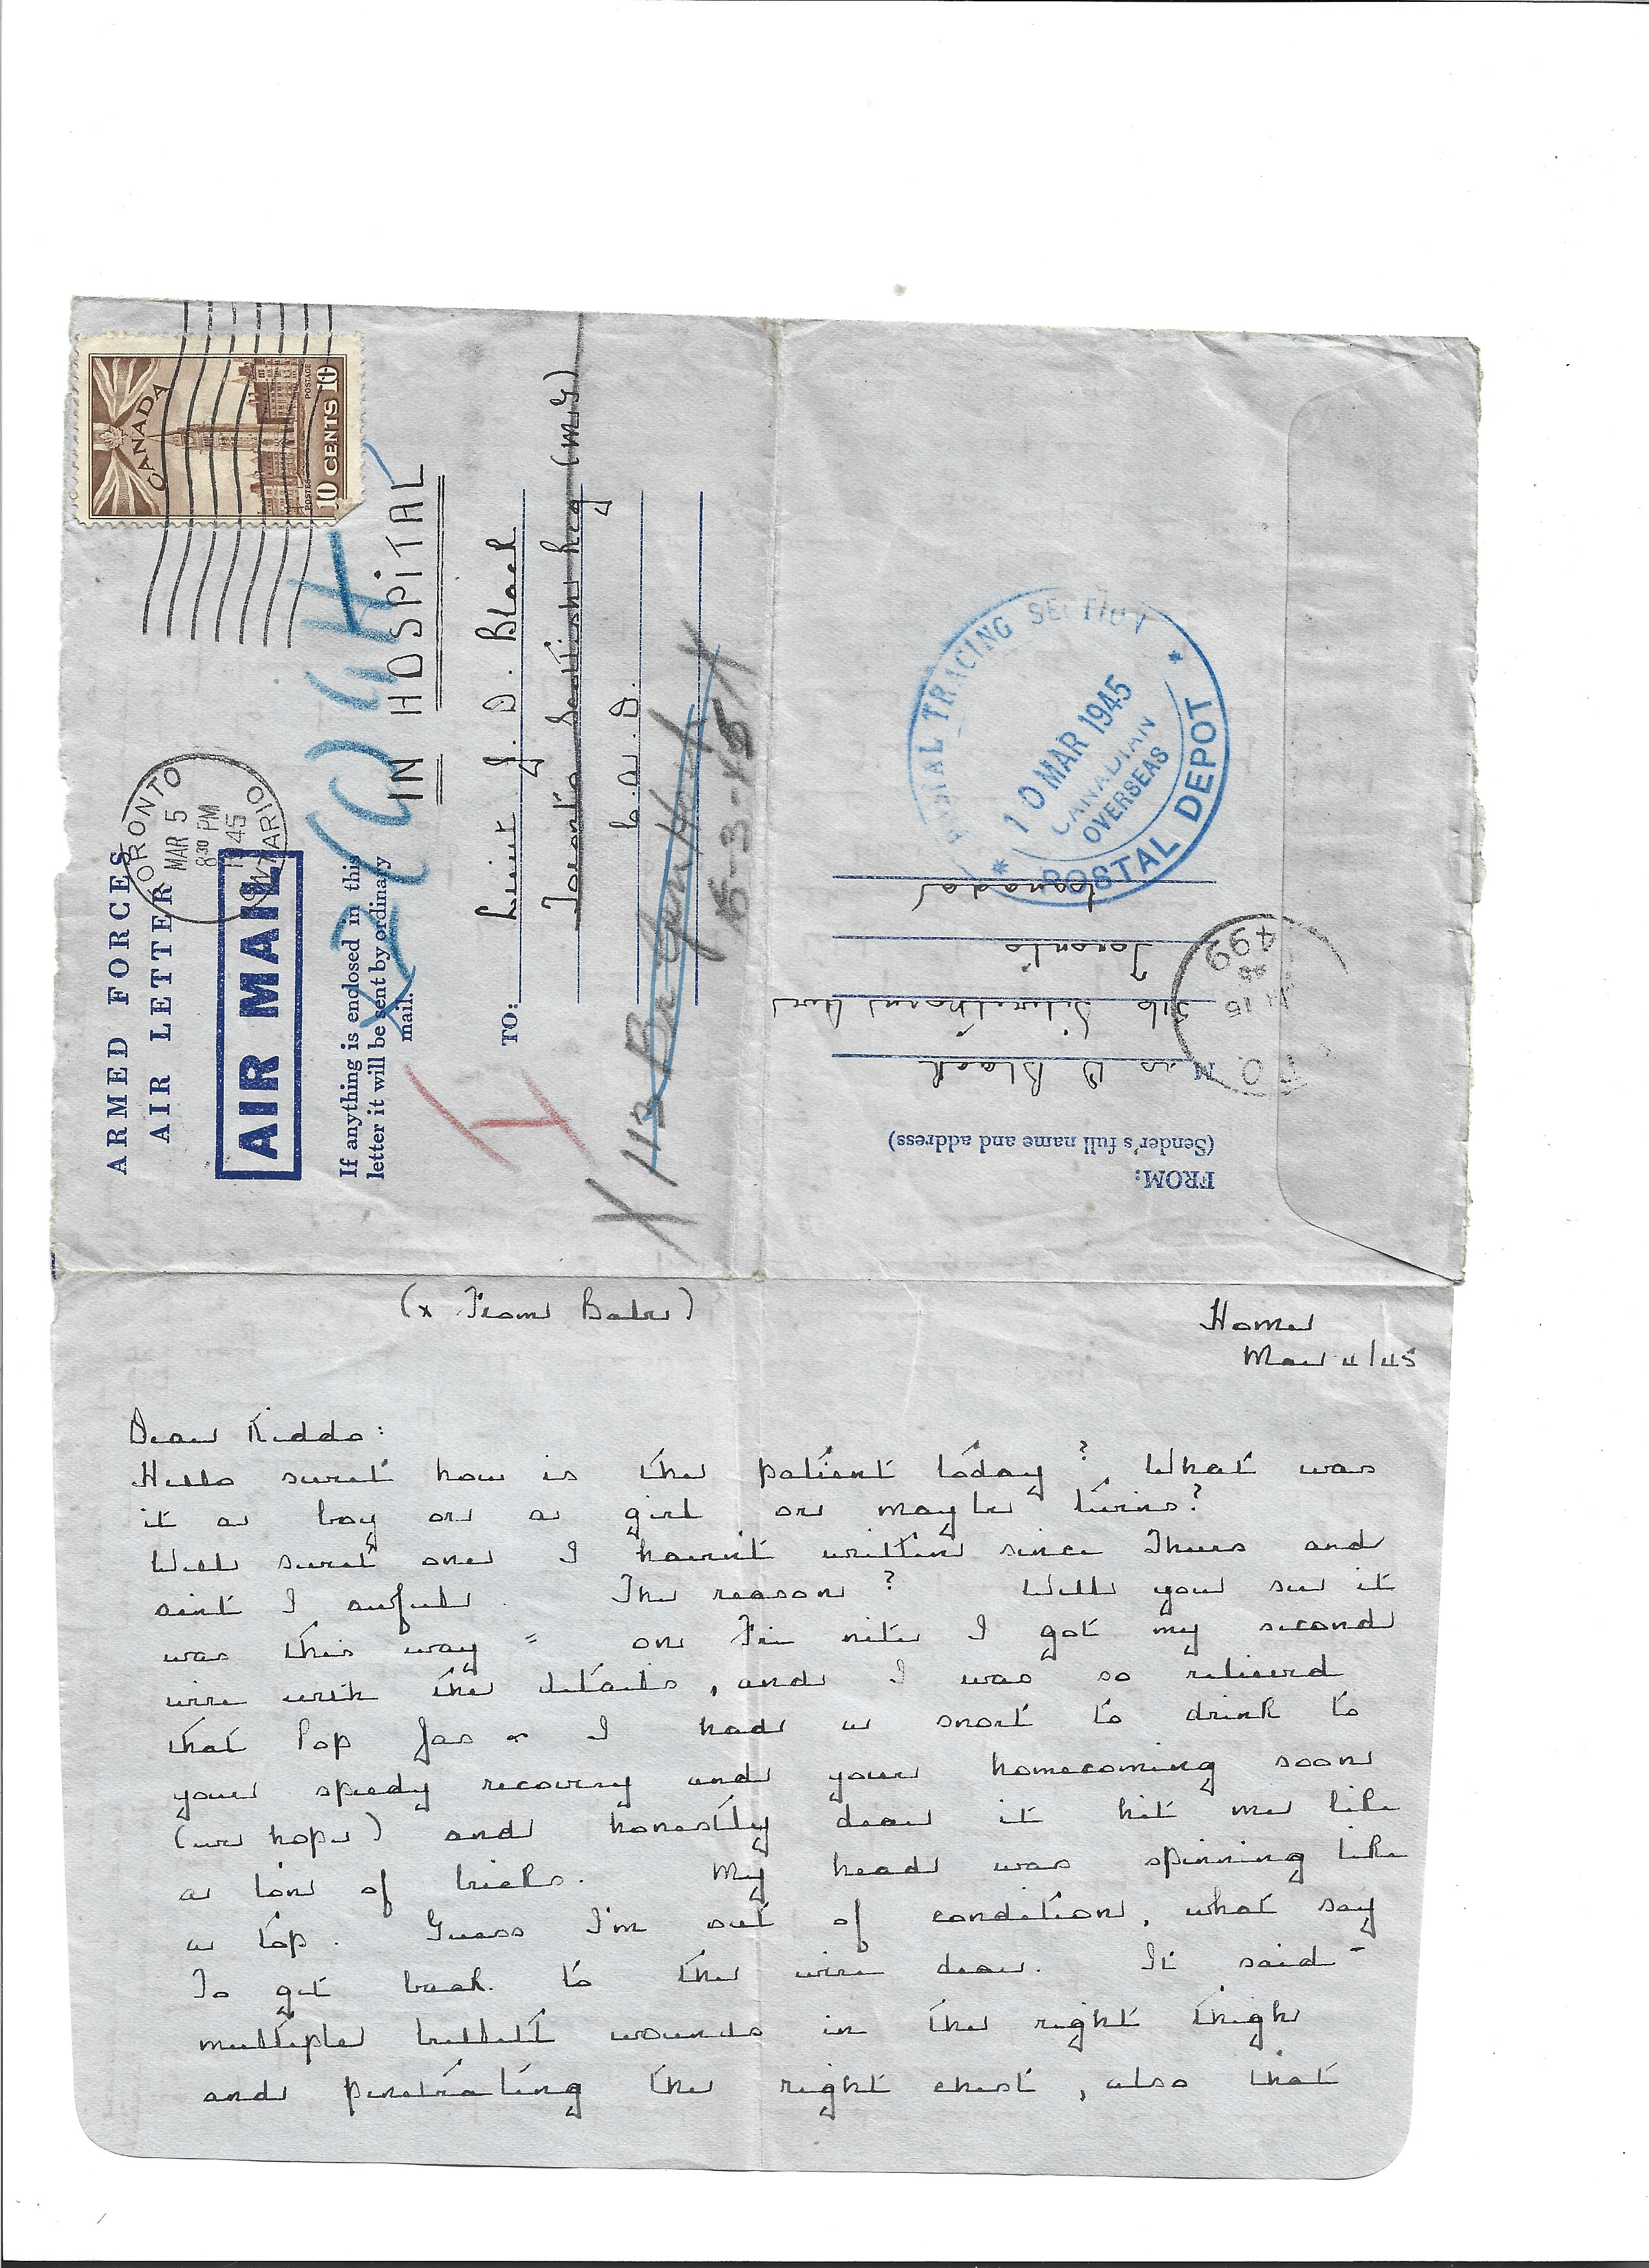 ARMED FORCES
AIR LETTER
AIR MAIL
If anything is enclosed in this
letter it will be sent by ordinary
mail.
TORONTO
MAR 5
8 30 PM
1945
ONTARIO
CANADA
POSTES POSTAGE
10 CENTS 10
IN HOSPITAL
TO: Lieut J. D. Black
Toronto Scottish Reg (M G)
C. A. O.
15-3-45
POSTAL TRACING SECTION
10 MAR 1945
CANADIAN
OVERSEAS
POSTAL DEPOT
499
FROM:
(Sender's full name and address)
Mrs D Black
Silverthorn Ave
Toronto
Canada
(x From Babs)
Home
Mar 4/45
Dear Kiddo:
Hello sweet how is the patient today? What was
it a boy or a girl or maybe twins?
Well sweet one I haven't written since Thurs and
aint I awful. The reason? Well you see it
was this way = on Fri nite I got my second
wire with the details, and I was so relieved
that Pop Jas & I had a snort to drink to
your speedy recovery and your homecoming soon
(we hope) and honestly dear it hit me like
a ton of bricks. My head was spinning like
a top. Guess I'm out of condition, what say
To get back to the wire dear. It said -
multiple bullett wounds in the right thigh
and penetrating the right chest, also that